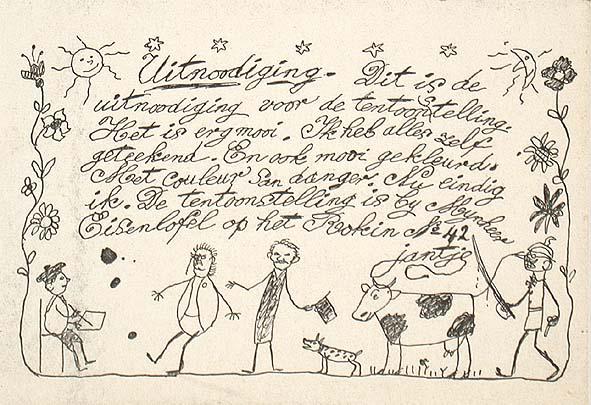 Uitnoodiging. Dit is de
uitnoodiging voor de tentoonstelling.
Het is erg mooi. Ik heb alles zelf
geteekend. En ook mooi gekleurd.
Met couleur san danger. Nu eindig
ik. De tentoonstelling is by Mynheer
Eisenlofel op het Rokin No 42
jantje